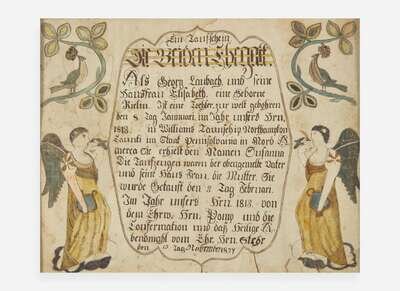 Ein Taufschein
Die Beiden Ehegatt.
Als Georg Laubach und seine
Hausfrau Elisabeth, eine Geborne
Rielin. Ist eine Tochter, zur welt gebohren
den 8 Tag Januwari. im Jahr unsers Hrn.
1818. in Williams Taunschip Northampton
Caunti im Staat Pennsilvania in Nord A
merca Sie erhielt den Namen Susanna
Die Taufzeugen waren der obengemelte Vater
und seine Haus Frau, die Mutter. Sie
wurde Getauft den 8 Tag Februari.
Im Jahr unsers Hrn. 1818. von
dem Ehrw. Hrn. Pomp und die
Confermation und daß Heilige A.
bendmahl vom Ehr. Hrn. Stehr
den 15 Tag November 1837